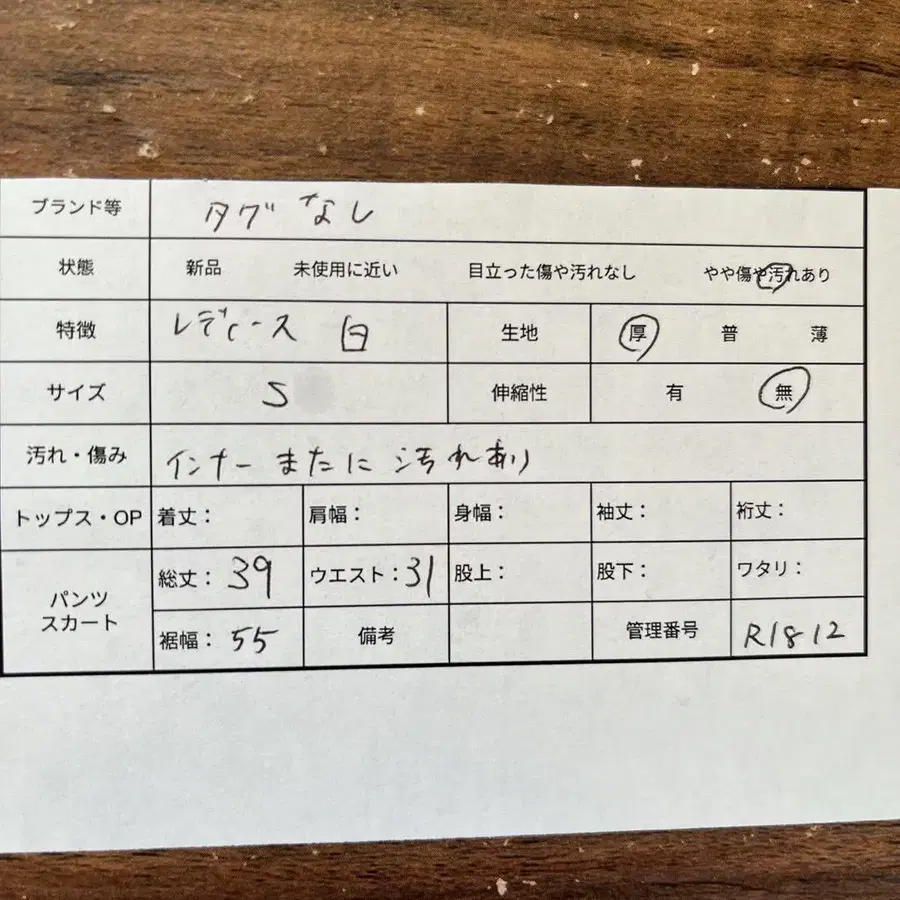 ブランド等 タグなし
状態 新品 未使用に近い 目立った傷や汚れなし やや傷や汚れあり
特徴 レディース 白 生地 厚 普 薄
サイズ S 伸縮性 有 無
汚れ・傷み インナーまたに汚れあり
トップス・OP 着丈： 肩幅： 身幅： 袖丈： 裄丈：
パンツ スカート 総丈：39 ウエスト：31 股上： 股下： ワタリ：
裾幅：55 備考 管理番号 R1812